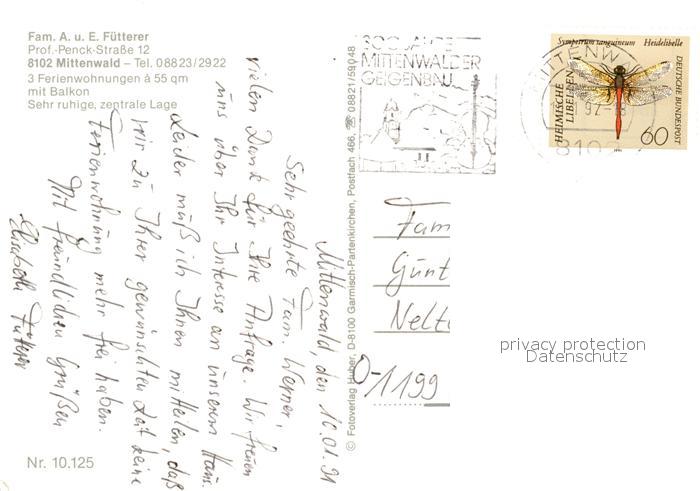 Fam. A. u. E. Fütterer
Prof.-Penck-Straße 12
8102 Mittenwald – Tel. 08823/2922
3 Ferienwohnungen à 55 qm
mit Balkon
Sehr ruhige, zentrale Lage
Mittenwald, den 10.01.91
Sehr geehrte Fam. Werner,
vielen Dank für Ihre Anfrage. Wir freuen
uns über Ihr Interesse an unserem Haus.
Leider muß ich Ihnen mitteilen, daß
wir zu Ihrer gewünschten Zeit keine
Ferienwohnung mehr frei haben.
Mit freundlichen Grüßen
Elisabeth Fütterer
Nr. 10.125
© Fotoverlag Huber, D-8100 Garmisch-Partenkirchen, Postfach 466, ☎ 08821/59048
300 JAHRE
MITTENWALDER
GEIGENBAU
Sympetrum sanguineum Heidelibelle
HEIMISCHE
LIBELLEN
DEUTSCHE BUNDESPOST
60
MITTENW
92
8102
Fam
Günt
Nelt
O-1199
privacy protection
Datenschutz